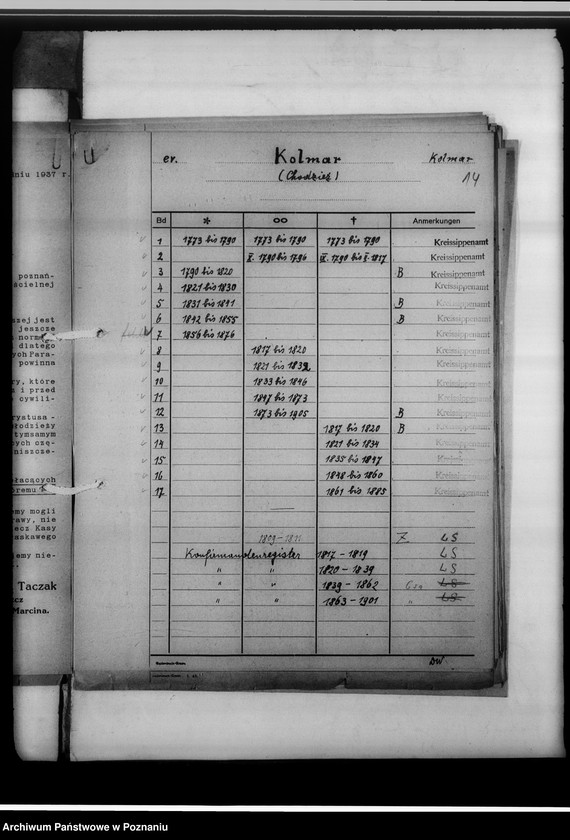 dniu 1937 r.
poznań-
acielnej
zej jest
jeszcze
norm
dlatego
ych Para-
powinna
ry, które
i przed
cywili-
rystusa -
łodzieży
tymsamym
ych czę-
niszcze-
emy mogli
rawy, nie
ecz Kasy
askawego
emy nie-
Taczak
Marcina.
ev. Kolmar Kolmar
(Chodzież) 14
Bd * ∞ † Anmerkungen
1 1773 bis 1790 1773 bis 1790 1773 bis 1790 Kreissippenamt
2 II. 1790 bis 1796 IX. 1790 bis I. 1817 Kreissippenamt
3 1790 bis 1820 B Kreissippenamt
4 1821 bis 1830 Kreissippenamt
5 1831 bis 1841 B Kreissippenamt
6 1842 bis 1855 B Kreissippenamt
7 1856 bis 1876 Kreissippenamt
8 1817 bis 1820 Kreissippenamt
9 1821 bis 1832 Kreissippenamt
10 1833 bis 1846 Kreissippenamt
11 1847 bis 1873 Kreissippenamt
12 1873 bis 1905 B Kreissippenamt
13 1817 bis 1820 B Kreissippenamt
14 1821 bis 1834 Kreissippenamt
15 1835 bis 1847
16 1848 bis 1860
17 1861 bis 1885 Kreissippenamt
Z LS
Konfirmandenregister 1817 - 1819 LS
" " 1820 - 1839 LS
" " 1839 - 1862 LS
" " 1863 - 1901 " LS
DW
Archiwum Państwowe w Poznaniu